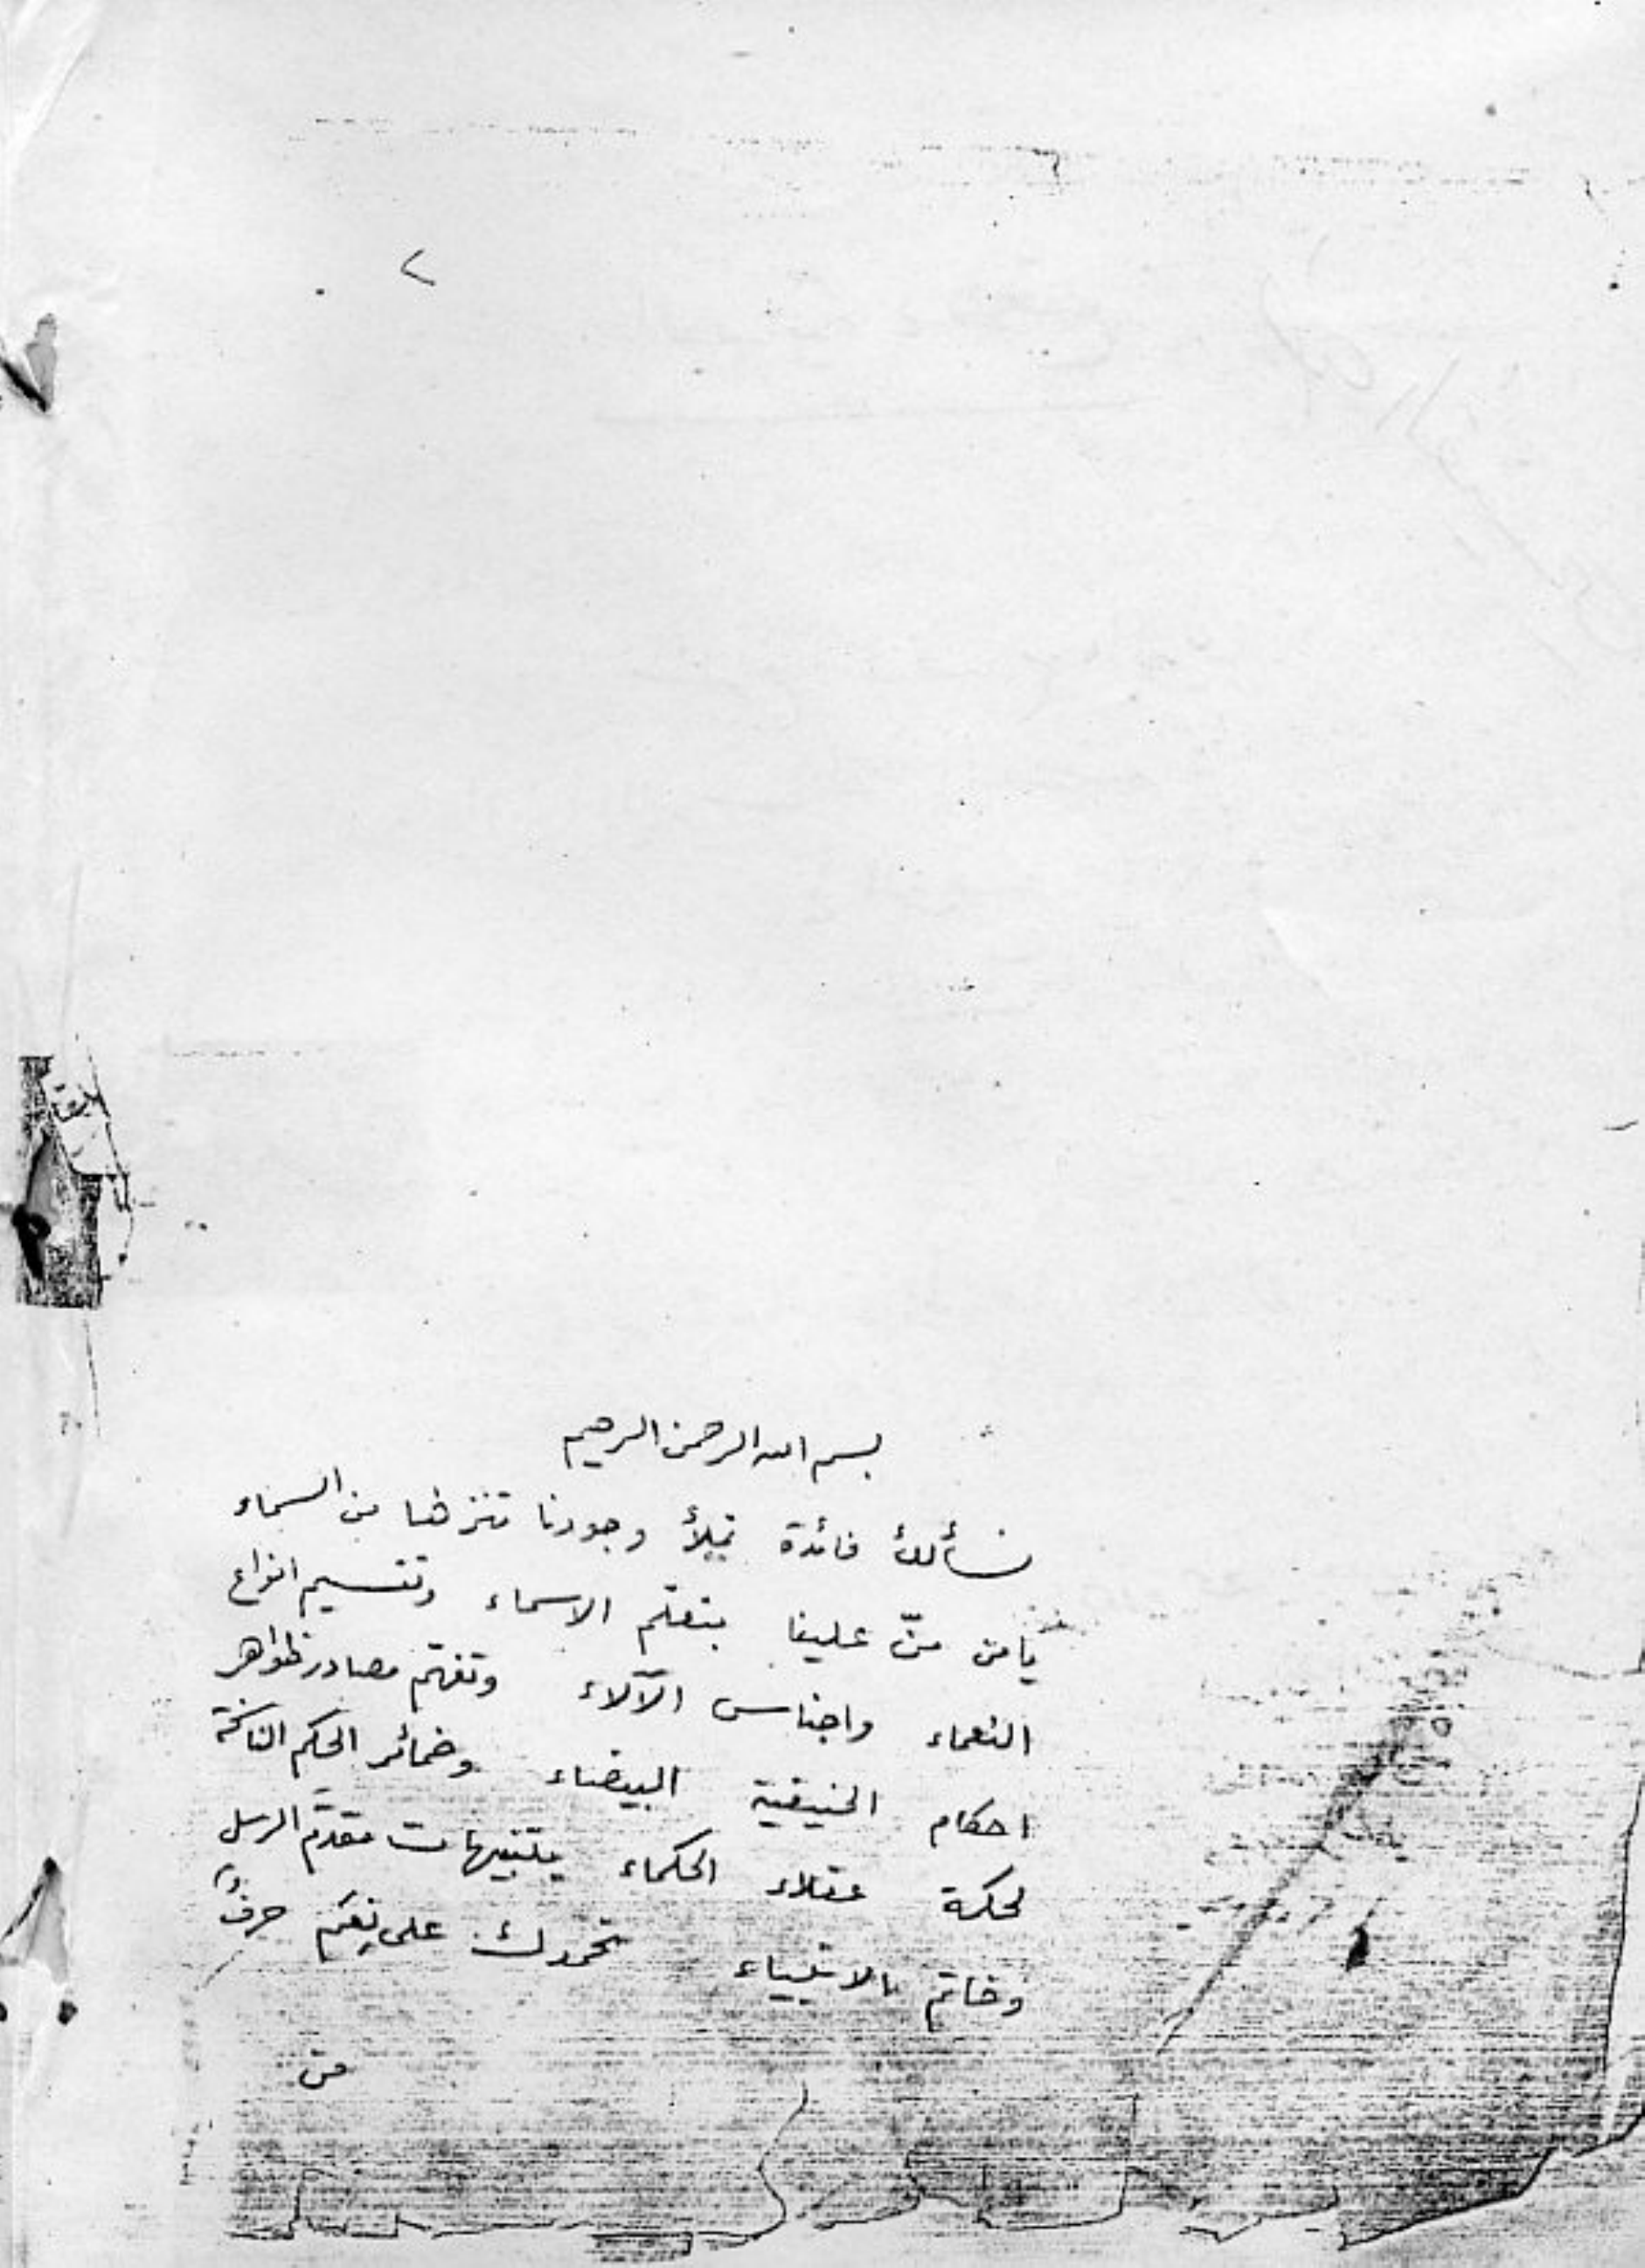 ٢
بسم الله الرحمن الرحيم
نسألك فائدة تملأ وجودنا من السماء
يا من منّ علينا بتعلم الاسماء وتقسيم انواع
النعماء واجناس الآلاء وتفهم مصادر ظواهر
احكام الحنيفية البيضاء وضمائر الحكم الناكتة
لحكمة عقلاء الحكماء بتنبيهات مقدّم الرسل
وخاتم الانبياء نحمدك على نِعَم
من